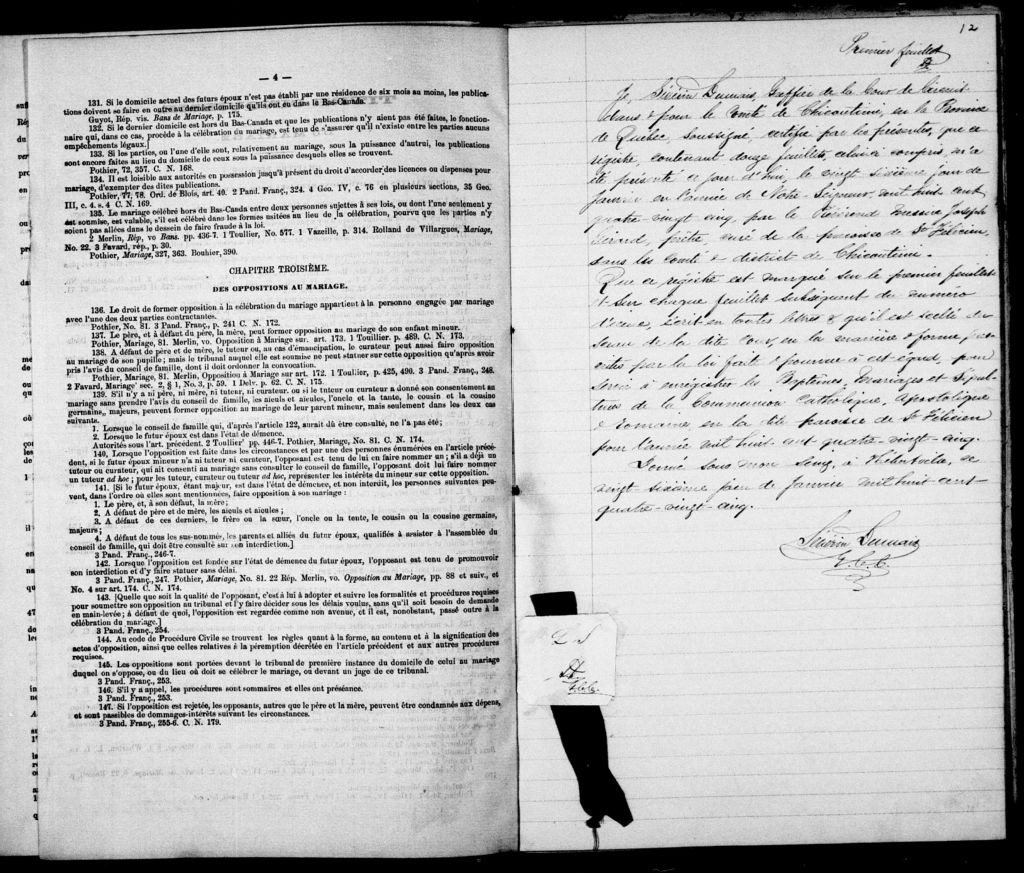 — 4 —
131. Si le domicile actuel des futurs époux n'est pas établi par une résidence de six mois au moins, les publica-
tions doivent se faire en outre au dernier domicile qu'ils ont eu dans le Bas-Canada.
Guyot, Rép. vis. Bans de Mariage, p. 175.
132. Si le dernier domicile est hors du Bas-Canada et que les publications n'y aient pas été faites, le fonction-
naire qui, dans ce cas, procède à la célébration du mariage, est tenu de s'assurer qu'il n'existe entre les parties aucuns
empêchements légaux.]
133. Si les parties, ou l'une d'elle sont, relativement au mariage, sous la puissance d'autrui, les publications
sont encore faites au lieu du domicile de ceux sous la puissance desquels elles se trouvent.
Pothier, 72, 357. C. N. 168.
134. Il est loisible aux autorités en possession jusqu'à présent du droit d'accorder des licences ou dispenses pour
mariage, d'exempter des dites publications.
Pothier, 77, 78. Ord. de Blois, art. 40. 2 Pand. Franç., 324. 4 Geo. IV, c. 76 en plusieurs sections, 35 Geo.
III, c. 4. s. 4 C. N. 169.
135. Le mariage célébré hors du Bas-Canada entre deux personnes sujettes à ses lois, ou dont l'une seulement y
est soumise, est valable, s'il est célébré dans les formes usitées au lieu de la célébration, pourvu que les parties n'y
soient pas allées dans le dessein de faire fraude à la loi.
2 Merlin, Rép, vo Bans. pp. 436-7. 1 Toullier, No. 577. 1 Vazeille, p. 314. Rolland de Villargues, Mariage,
No. 22. 3 Favard, rép., p. 30.
Pothier, Mariage, 327, 363. Bouhier, 390.
CHAPITRE TROISIÈME.
DES OPPOSITIONS AU MARIAGE.
136. Le droit de former opposition à la célébration du mariage appartient à la personne engagée par mariage
avec l'une des deux parties contractantes.
Pothier, No. 81. 3 Pand. Franç., p. 241 C. N. 172.
137. Le père, et à défaut du père, la mère, peut former opposition au mariage de son enfant mineur.
Pothier, Mariage, 81. Merlin, vo. Opposition à Mariage sur. art. 173. 1 Toullier. p. 489. C. N. 173.
138. A défaut de père et de mère, le tuteur ou, au cas d'émancipation, le curateur peut aussi faire opposition
au mariage de son pupille; mais le tribunal auquel elle est soumise ne peut statuer sur cette opposition qu'après avoir
pris l'avis du conseil de famille, dont il doit ordonner la convocation.
Pothier, Mariage, 81. Merlin, Opposition à Mariage sur art. 172. 1 Toullier, p. 425, 490. 3 Pand. Franç., 248.
2 Favard, Mariage' sec. 2, § 1, No. 3, p. 59. 1 Delv. p. 62. C. N. 175.
139. S'il n'y a ni père, ni mère, ni tuteur, ni curateur, ou si le tuteur ou curateur a donné son consentement au
mariage sans prendre l'avis du conseil de famille, les aïeuls et aïeules, l'oncle et la tante, le cousin et la cousine
germains, majeurs, peuvent former opposition au mariage de leur parent mineur, mais seulement dans les deux cas
suivants.
1. Lorsque le conseil de famille qui, d'après l'article 122, aurait dû être consulté, ne l'a pas été;
2. Lorsque le futur époux est dans l'état de démence.
Autorités sous l'art. précédent. 2 Toullier' pp. 446-7. Pothier, Mariage, No. 81. C. N. 174.
140. Lorsque l'opposition est faite dans les circonstances et par une des personnes énumérées en l'article précé-
dent, si le futur époux mineur n'a ni tuteur ni curateur, l'opposant est tenu de lui en faire nommer un; s'il a déjà un
tuteur ou curateur, qui ait consenti au mariage sans consulter le conseil de famille, l'opposant doit lui faire nommer
un tuteur ad hoc; pour les tuteur, curateur ou tuteur ad hoc, représenter les intérêts du mineur sur cette opposition.
141. [Si le futur époux, étant majeur, est dans l'état de démence, et non interdit, les personnes suivantes peu-
vent, dans l'ordre où elles sont mentionnées, faire opposition à son mariage :
1. Le père, et, à son défaut, la mère;
2. A défaut de père et de mère, les aïeuls et aïeules;
3. A défaut de ces derniers, le frère ou la sœur, l'oncle ou la tante, le cousin ou la cousine germains,
majeurs;
4. A défaut de tous les sus-nommés, les parents et alliés du futur époux, qualifiés à assister à l'assemblée du
conseil de famille, qui doit être consulté sur son interdiction.]
3 Pand. Franç., 246-7.
142. Lorsque l'opposition est fondée sur l'état de démence du futur époux, l'opposant est tenu de promouvoir
son interdiction et d'y faire statuer sans délai.
3 Pand. Franç., 247. Pothier, Mariage, No. 81. 22 Rép. Merlin, vo. Opposition au Mariage, pp. 88 et suiv., et
No. 4 sur art. 174. C. N. 174.
143. [Quelle que soit la qualité de l'opposant, c'est à lui à adopter et suivre les formalités et procédures requises
pour soumettre son opposition au tribunal et l'y faire décider sous les délais voulus, sans qu'il soit besoin de demande
en main-levée; à défaut de quoi, l'opposition est regardée comme non avenue, et il est, nonobstant, passé outre à la
célébration du mariage.]
3 Pand. Franç., 254.
144. Au code de Procédure Civile se trouvent les règles quant à la forme, au contenu et à la signification des
actes d'opposition, ainsi que celles relatives à la péremption décrétée en l'article précédent et aux autres procédures
requises.
145. Les oppositions sont portées devant le tribunal de première instance du domicile de celui au mariage
duquel on s'oppose, ou du lieu où doit se célébrer le mariage, ou devant un juge de ce tribunal.
3 Pand. Franç., 253.
146. S'il y a appel, les procédures sont sommaires et elles ont préséance.
3 Pand. Franç., 253.
147. Si l'opposition est rejetée, les opposants, autres que le père et la mère, peuvent être condamnés aux dépens,
et sont passibles de dommages-intérêts suivant les circonstances.
3 Pand. Franç., 255-6. C. N. 179.
12
Premier feuillet
Je, Séverin Dumais, Greffier de la Cour de Circuit
dans & pour le Comté de Chicoutimi, en la Province
de Québec, soussigné, certifie par les présentes, que ce
régistre, contenant douze feuillets, celui-ci compris, m'a
été présenté ce jour d'hui, le vingt sixième jour de
janvier en l'année de Notre-Seigneur, mil huit cent
quatre vingt cinq, par le Révérend Messire Joseph
Girard, prêtre, curé de la paroisse de St Félicien,
dans les Comté & district de Chicoutimi.
Que ce régistre est marqué sur le premier feuillet
& sur chaque feuillet subséquent du numéro
d'iceux, écrit en toutes lettres & qu'il est scellé du
sceau de la dite Cour, en la manière & forme
par la loi faite & pourvue à cet égard, pour
servir à enregistrer les Baptêmes, Mariages et Sépul-
tures de la Communion Catholique, Apostolique
& Romaine, en la dite paroisse de St Félicien
pour l'année mil huit cent quatre-vingt-cinq.
Donné sous mon seing, à Hébertville, ce
vingt-sixième jour de Janvier mil huit cent
quatre-vingt-cinq.
Séverin Dumais
G.C.C.
G.C.C.